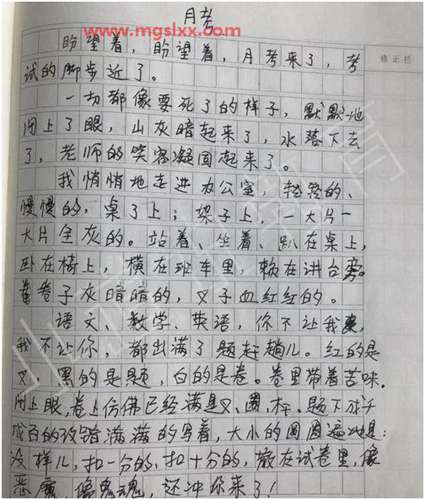 月考
www.mgslxx.com
盼望着,盼望着,月考来了,考
修正栏
试的脚步近了。
一切都像要死了的样子,默默地
闭上了眼,山灰暗起来了,水落下去
了,老师的笑容凝固起来了。
我悄悄地走进办公室,轻轻的、
慢慢的,桌子上;架子上,一大片一
大片全灰的。站着、坐着、趴在桌上,
卧在椅上,横在班车里,赖在讲台旁。
卷子灰暗暗的,叉子血红红的。
语文、数学、英语,你不让我,
我不让你,都出满了题赶趟儿。红的是
叉,黑的是题,白的是卷。卷里带着苦味,
闭上眼,卷上仿佛已经满是叉、圈、杠。题下成千
成百的段错满满的写着,大小的圆圆遍地是:
没样儿,扣一分的,扣十分的,散在试卷里,像
恶魔,像鬼魂,还冲你来了!